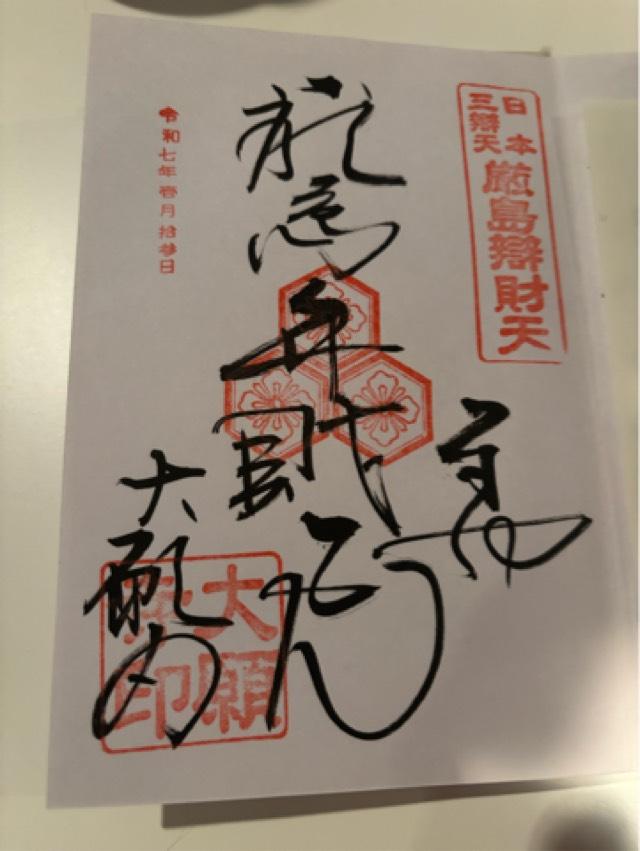 日本
三辯天
厳島辯財天
奉拝
厳島弁財天
大願寺
大願寺印
令和七年壱月拾参日